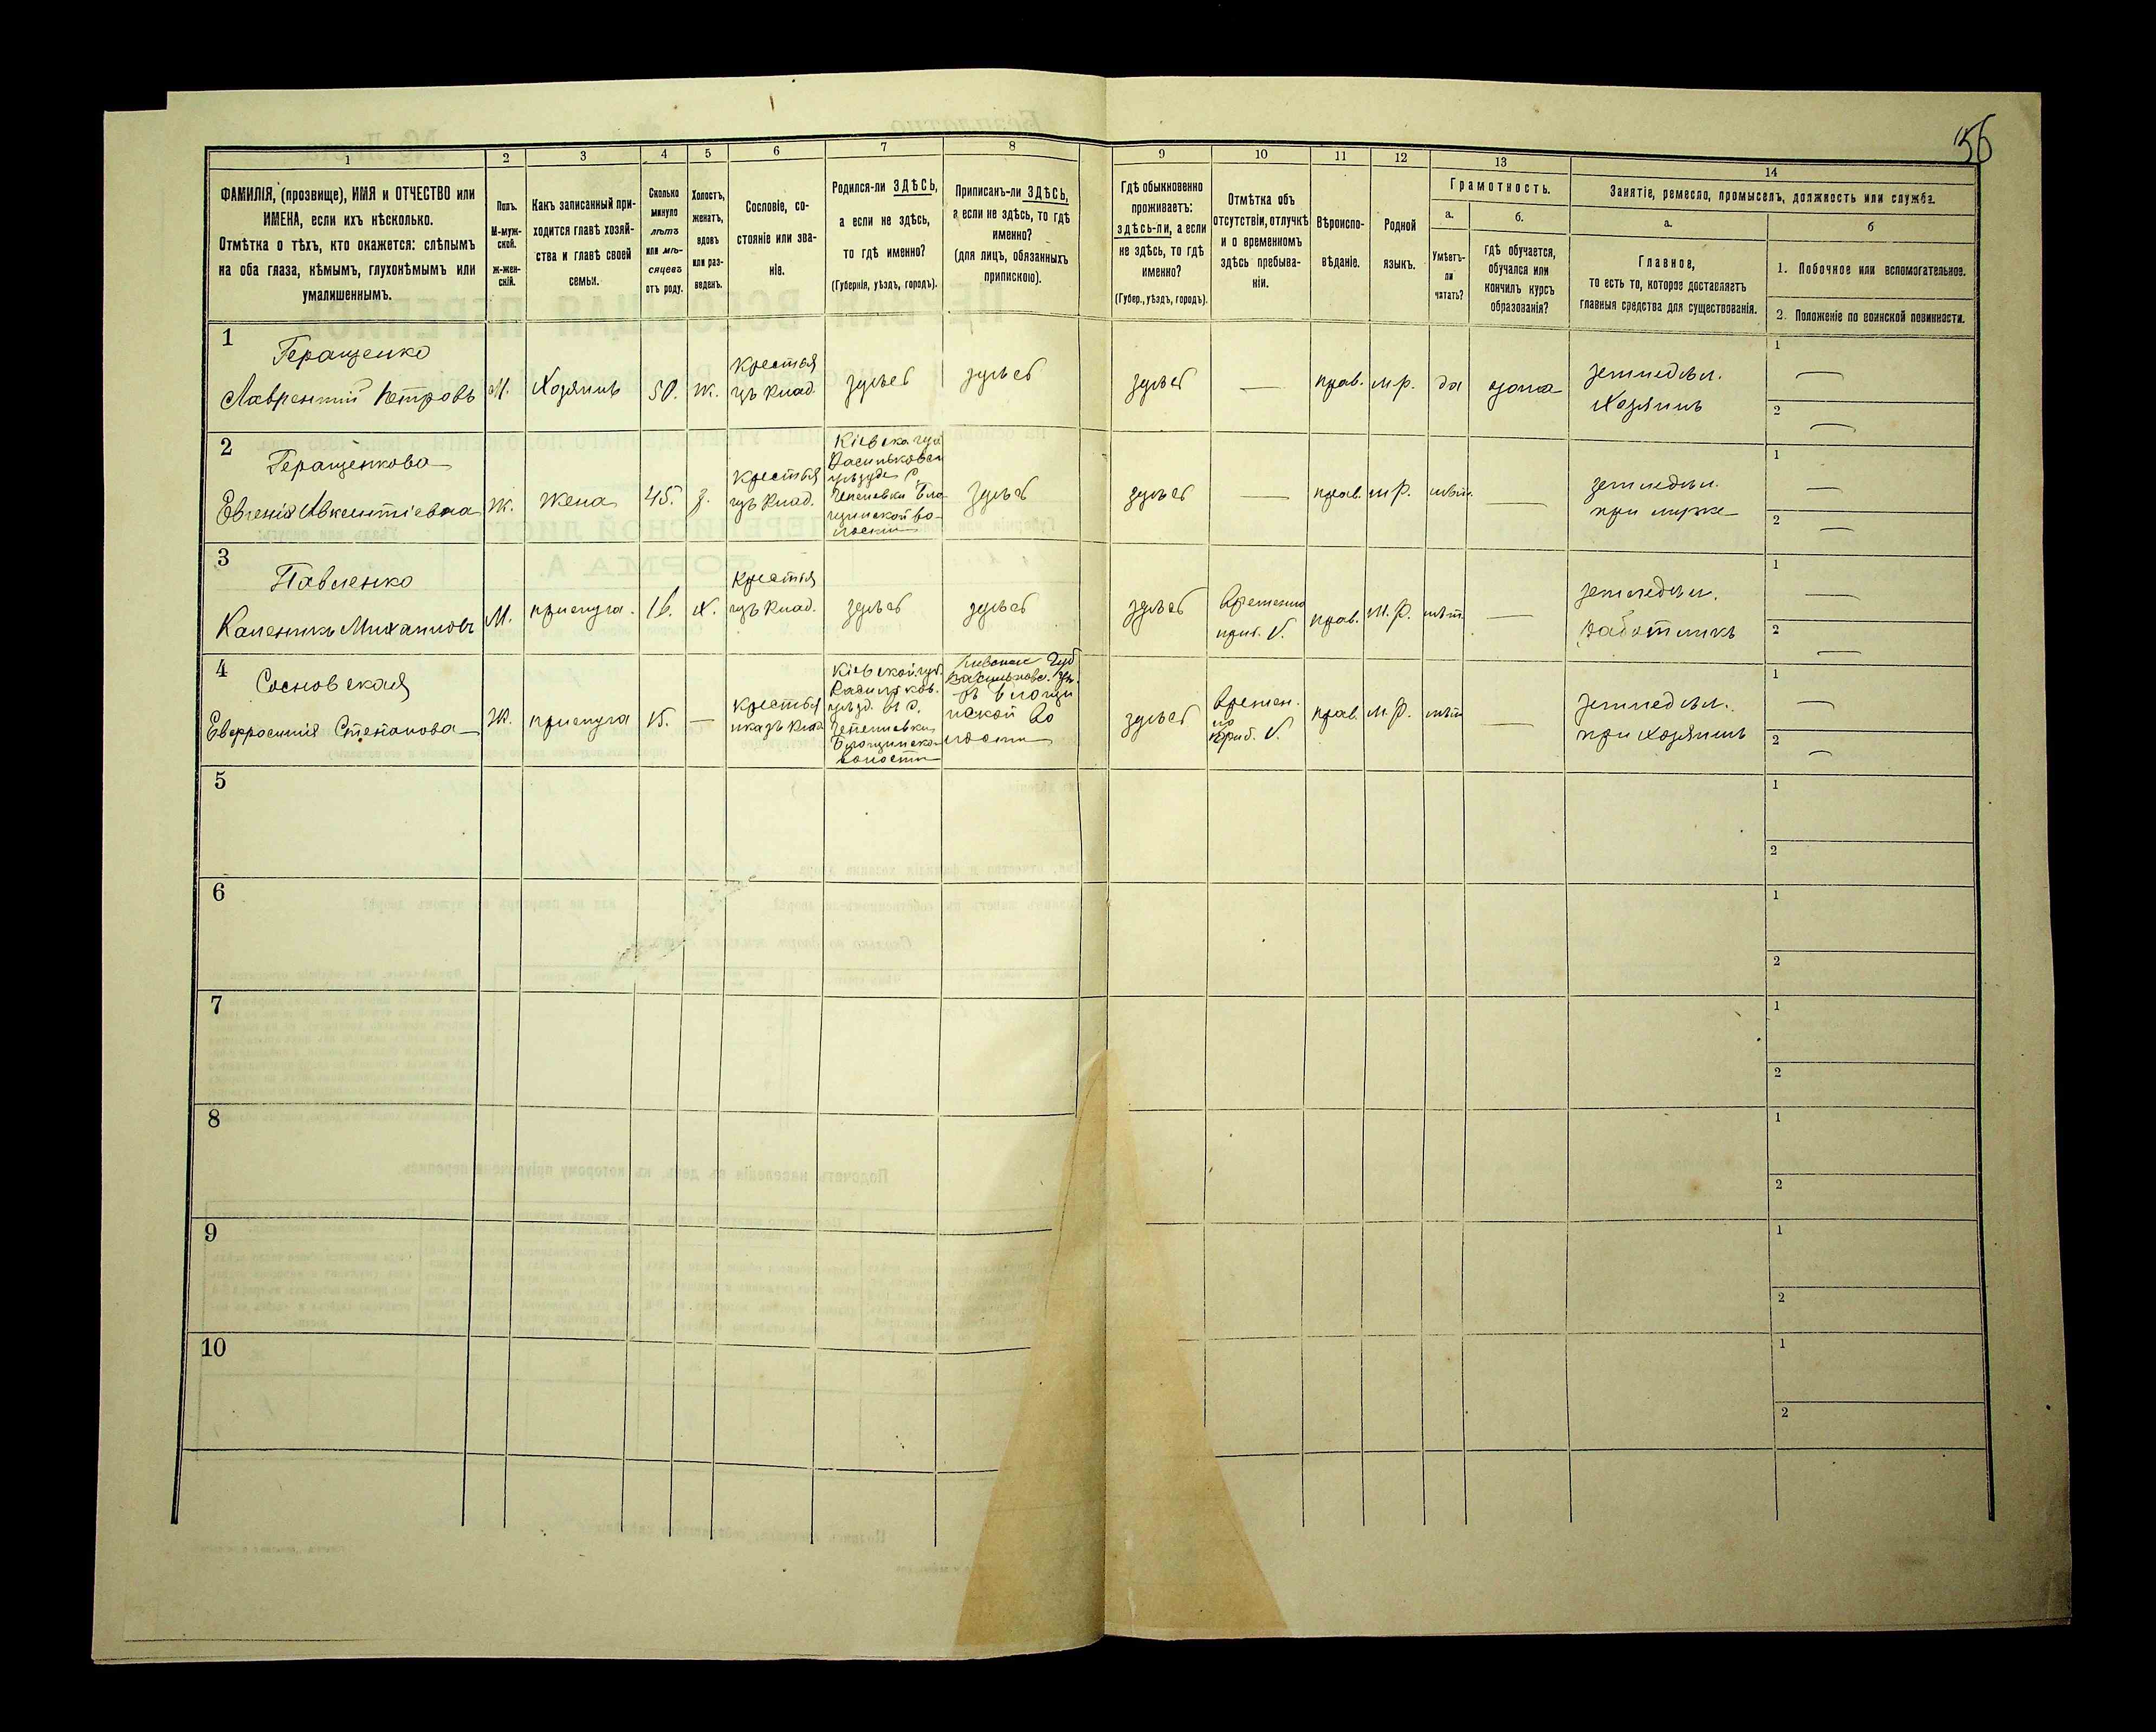 156
1
2
3
4
5
6
7
8
9
10
11
12
13
14
ФАМИЛІЯ, (прозвище), ИМЯ и ОТЧЕСТВО или
ИМЕНА, если ихъ нѣсколько.
Отмѣтка о тѣхъ, кто окажется: слѣпымъ
на оба глаза, нѣмымъ, глухонѣмымъ или
умалишеннымъ.
Полъ.
М-муж-
ской.
ж-жен-
скій.
Какъ записанный при-
ходится главѣ хозяй-
ства и главѣ своей
семьи.
Сколько
минуло
лѣтъ
или мѣ-
сяцевъ
отъ роду.
Холостъ,
женатъ,
вдовъ
или раз-
веденъ.
Сословіе, со-
стояніе или зва-
ніе.
Родился-ли ЗДѢСЬ,
а если не здѣсь,
то гдѣ именно?
(Губернія, уѣздъ, городъ).
Приписанъ-ли ЗДѢСЬ,
а если не здѣсь, то гдѣ
именно?
(для лицъ, обязанныхъ
припискою).
Гдѣ обыкновенно
проживаетъ:
здѣсь-ли, а если
не здѣсь, то гдѣ
именно?
(Губер., уѣздъ, городъ).
Отмѣтка объ
отсутствіи, отлучкѣ
и о временномъ
здѣсь пребыва-
ніи.
Вѣроиспо-
вѣданіе.
Родной
языкъ.
Грамотность.
а.
б.
Умѣетъ-
ли
читать?
гдѣ обучается,
обучался или
кончилъ курсъ
образованія?
Занятіе, ремесло, промыселъ, должность или служба.
а.
б
Главное,
то есть то, которое доставляетъ
главныя средства для существованія.
1. Побочное или вспомогательное.
2. Положеніе по воинской повинности.
1
Геращенко
Лаврентій Петровъ
М.
Хозяинъ
50.
ж.
Крестья
изъ влад.
здѣсь
здѣсь
здѣсь
—
прав.
м.р.
да
дома
земледѣл.
Хозяинъ
1
—
2
—
2
Геращенкова
Евгенія Авксентіевна
Ж.
Жена
45.
з.
Крестья
изъ влад.
Кіевска губ
Васильковск
уѣзда С.
Чепелевки Бло-
щинской во-
лости
здѣсь
здѣсь
—
прав.
м.р.
нѣт.
—
земледѣл.
при мужѣ
1
—
2
—
3
Павленко
Каленикъ Михаиловъ
М.
прислуга.
16.
Х.
Крестья
изъ влад.
здѣсь
здѣсь
здѣсь
Временно
приб. V.
прав.
М.Р.
нѣт.
—
земледѣл.
Работникъ
1
—
2
—
4
Сосновская
Евфросинія Степанова
Ж.
прислуга
15.
—
Крестья
Кіевской губ.
Васильков.
уѣзд.
Чепелевки
Блощинско
волости
здѣсь
Времен.
но
приб. V.
прав.
М.Р.
нѣт
—
земледѣл.
при хозяинѣ
1
—
2
—
5
1
2
6
1
2
7
1
2
8
1
2
9
1
2
10
1
2